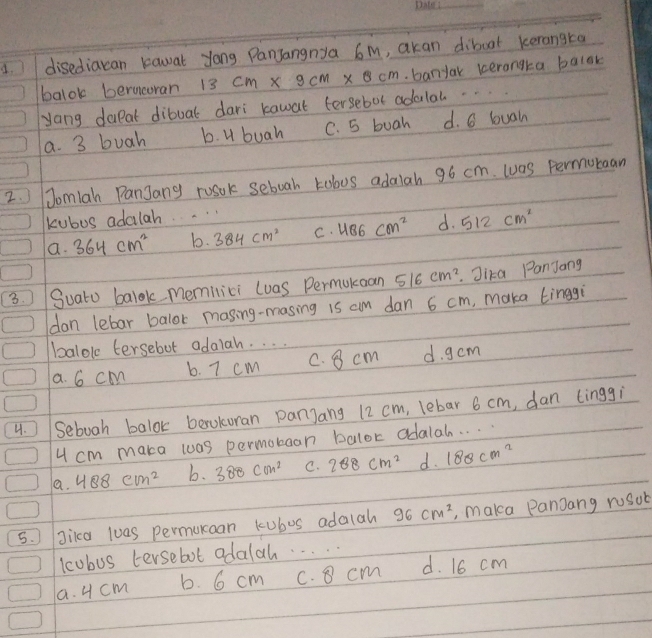 Date:
1. disediakan kawat yang Panjangnya 6 M, akan dibuat kerangka
balok berukuran 13 cm x 9 cm x 8 cm. banyak kerangka balok
yang dapat dibuat dari kawat tersebut adalah ....
a. 3 buah b. 4 buah c. 5 buah d. 6 buah
2. Jomlah Panjang rusuk sebuah kubus adalah 96 cm. luas Permukaan
kubus adalah .....
a. 364 cm² b. 384 cm² c. 486 cm² d. 512 cm²
3. Suatu balok Memiliki luas Permukaan 516 cm². Jika Panjang
dan lebar balok masing-masing 15 cm dan 6 cm, maka tinggi
balok tersebut adalah ....
a. 6 cm b. 7 cm c. 8 cm d. 9 cm
4. Sebuah balok berukuran panjang 12 cm, lebar 6 cm, dan tinggi
4 cm maka luas permukaan balok adalah ....
a. 488 cm² b. 388 cm² c. 288 cm² d. 188 cm²
5. Jika luas permukaan kubus adalah 96 cm², maka Panjang rusuk
kubus tersebut adalah .....
a. 4 cm b. 6 cm c. 8 cm d. 16 cm